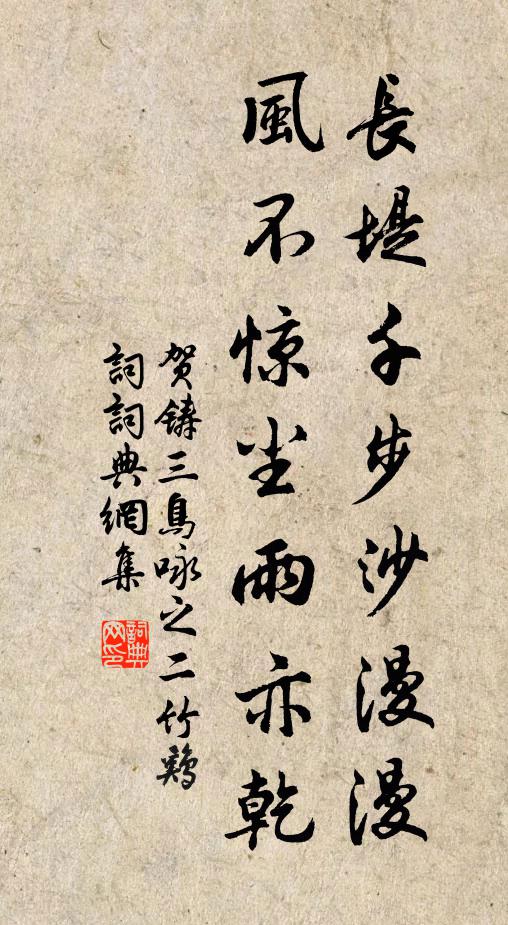 長堤千步沙漫漫
風不惊尘雨亦乾
贺鑄三鳥咏之二竹鷄
詞詞典網集
詞典網印